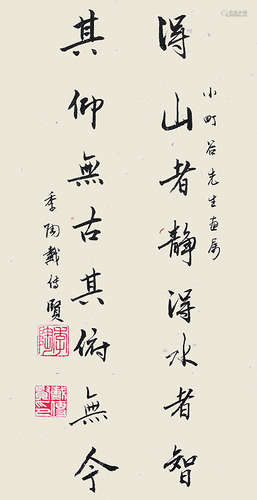 小町谷先生直属
得山者靜得水者智
其仰無古其俯無今
季陶戴传賢